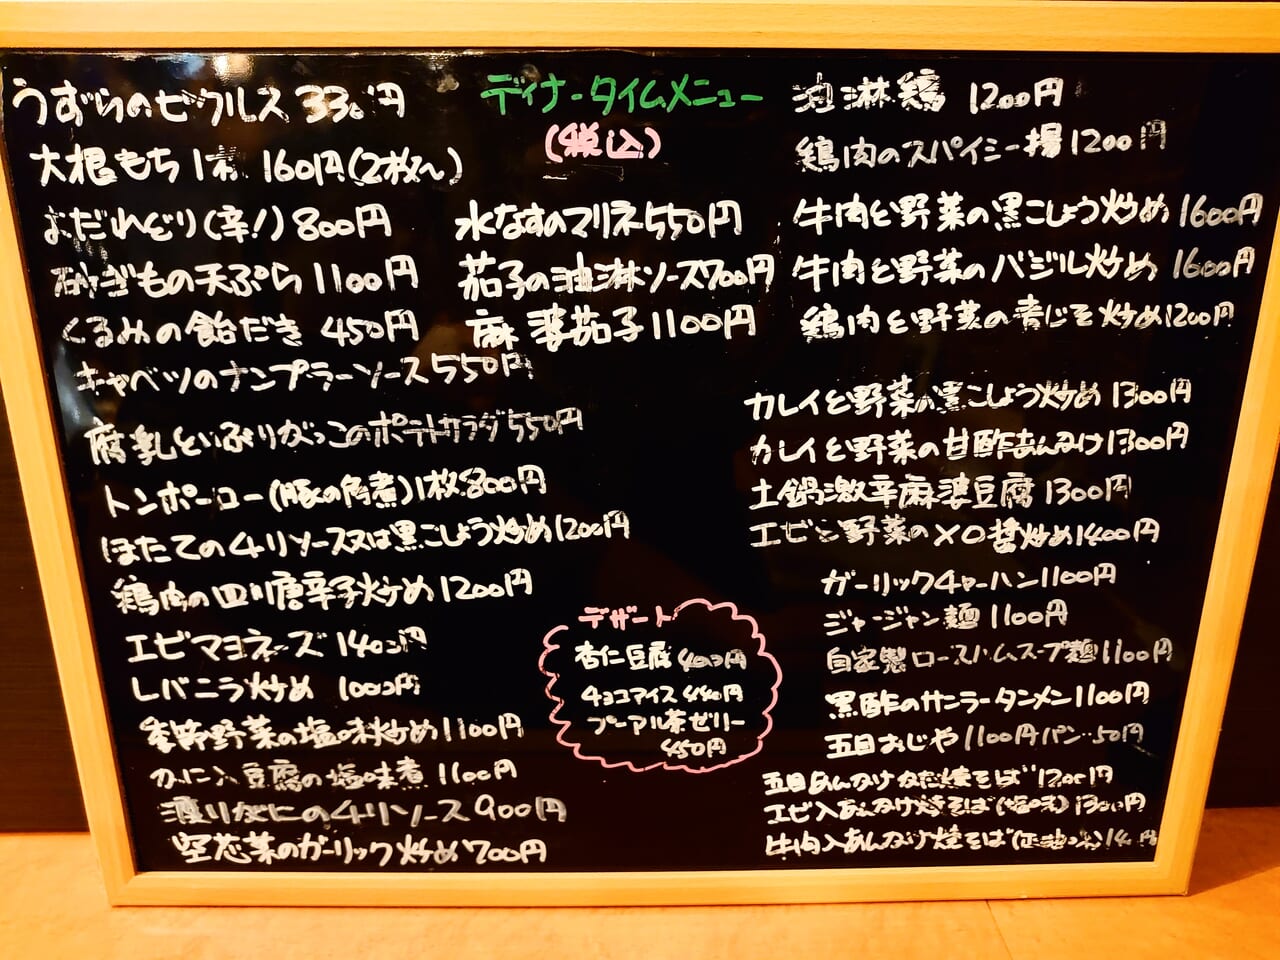 うずらのピクルス 330円
大根もち 1枚 160円(2枚〜)
よだれどり(辛!) 800円
砂ぎもの天ぷら 1100円
くるみの飴だき 450円
キャベツのナンプラーソース 550円
腐乳といぶりがっこのポテトサラダ 550円
トンポーロー(豚の角煮) 1枚 800円
ほたてのチリソース又は黒こしょう炒め 1200円
鶏肉の四川唐辛子炒め 1200円
エビマヨネーズ 1400円
レバニラ炒め 1000円
季節野菜の塩味炒め 1100円
かに入豆腐の塩味煮 1100円
渡りがにのチリソース 900円
空芯菜のガーリック炒め 700円
ディナータイムメニュー
(税込)
水なすのマリネ 550円
茄子の油淋ソース 700円
麻婆茄子 1100円
デザート
杏仁豆腐 400円
チョコアイス 440円
プーアル茶ゼリー
450円
油淋鶏 1200円
鶏肉のスパイシー揚 1200円
牛肉と野菜の黒こしょう炒め 1600円
牛肉と野菜のバジル炒め 1600円
鶏肉と野菜の青じそ炒め 1200円
カレイと野菜の黒こしょう炒め 1300円
カレイと野菜の甘酢あんかけ 1300円
土鍋激辛麻婆豆腐 1300円
エビと野菜のXO醤炒め 1400円
ガーリックチャーハン 1100円
ジャージャン麺 1100円
自家製ロースハムスープ麺 1100円
黒酢のサンラータンメン 1100円
五目おじや 1100円 パン 50円
五目あんかけかた焼そば 1200円
エビ入あんかけ焼そば(塩味) 1300円
牛肉入あんかけ焼そば(正油味)